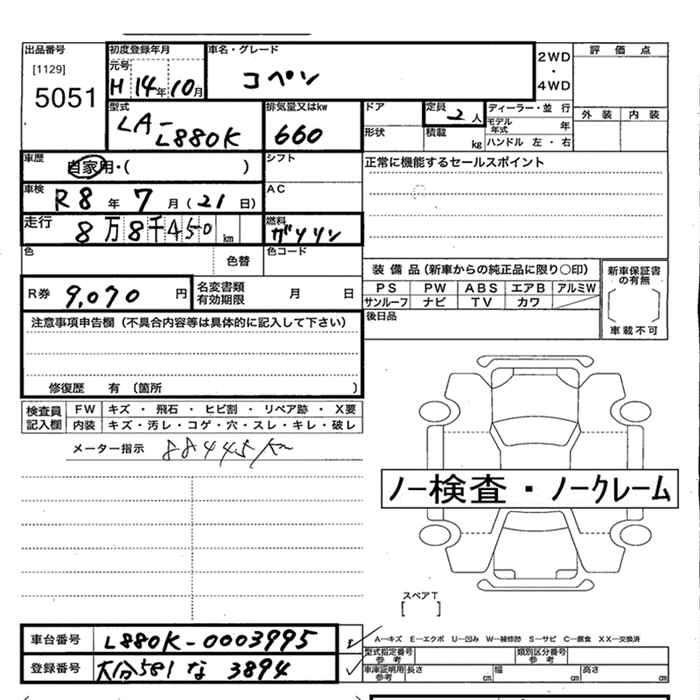 出品番号
[1129]
5051
初度登録年月
元号
H 14年 10月
車名・グレード
コペン
2WD
・
4WD
評価点
外装 内装
型式
LA-L880K
排気量又はkw
660
ドア
形状
定員
2人
積載
kg
ディーラー・並行
モデル年式 年
ハンドル 左・右
車歴
自家用・( )
シフト
正常に機能するセールスポイント
車検
R8年 7月(21日)
AC
走行
8万8千450km
燃料
ガソリン
色
色替
色コード
R券 9,070円
名変書類有効期限 月 日
装備品(新車からの純正品に限り○印)
PS PW ABS エアB アルミW
サンルーフ ナビ TV カワ
後日品
新車保証書の有無
車載不可
注意事項申告欄(不具合内容等は具体的に記入して下さい)
修復歴 有(箇所 )
検査員記入欄
FW キズ・飛石・ヒビ割・リペア跡・X要
内装 キズ・汚レ・コゲ・穴・スレ・キレ・破レ
メーター指示 88445Km
ノー検査・ノークレーム
スペアT
[ ]
車台番号 L880K-0003995
登録番号 大分581 な 3894
A―キズ E―エクボ U―凹み W―補修跡 S―サビ C―腐食 XX―交換済
型式指定番号 参考
類別区分番号 参考
車庫証明用参考 長さ cm 幅 cm 高さ cm